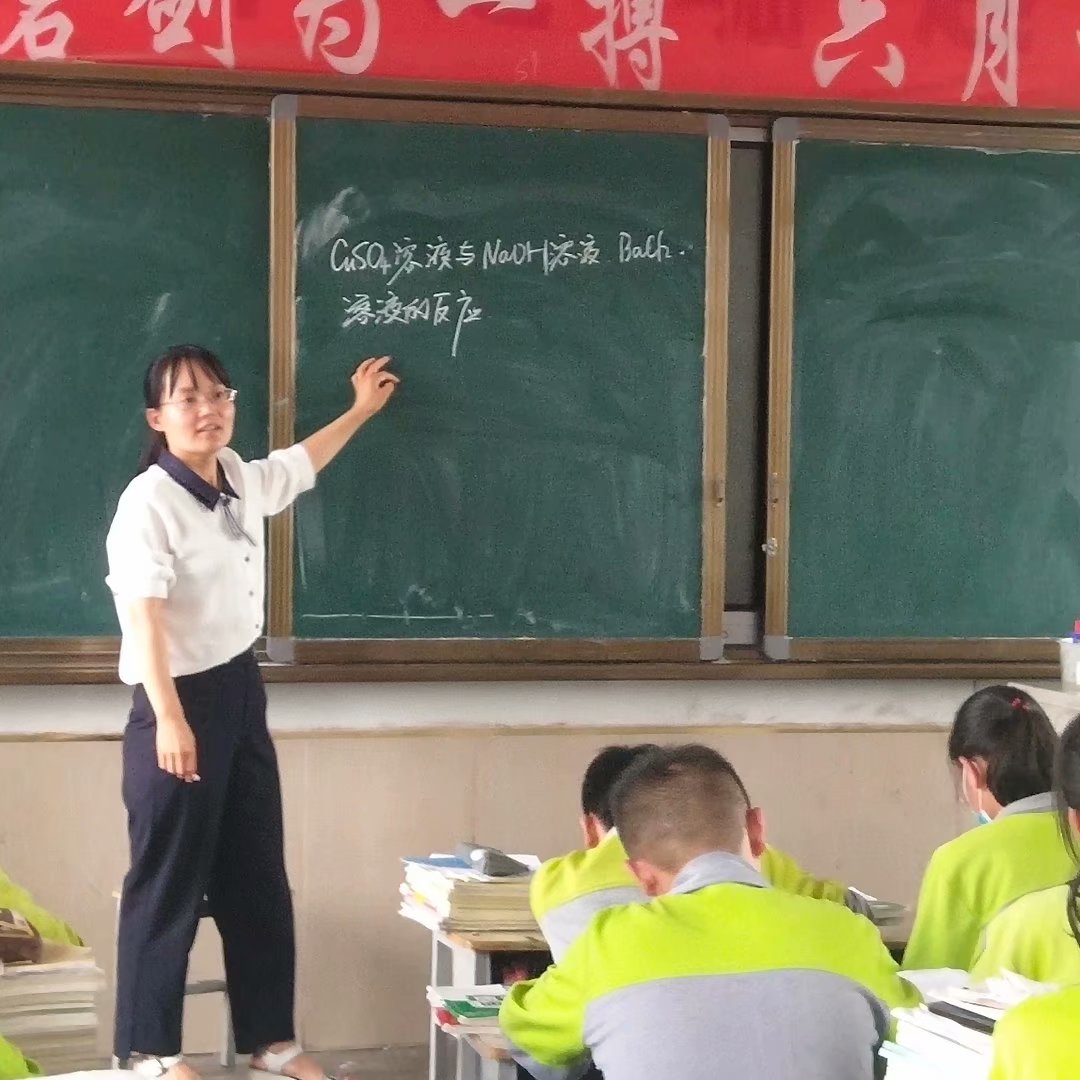 名剑为一搏 六月
CuSO4溶液与NaOH溶液 BaCl2
溶液的反应